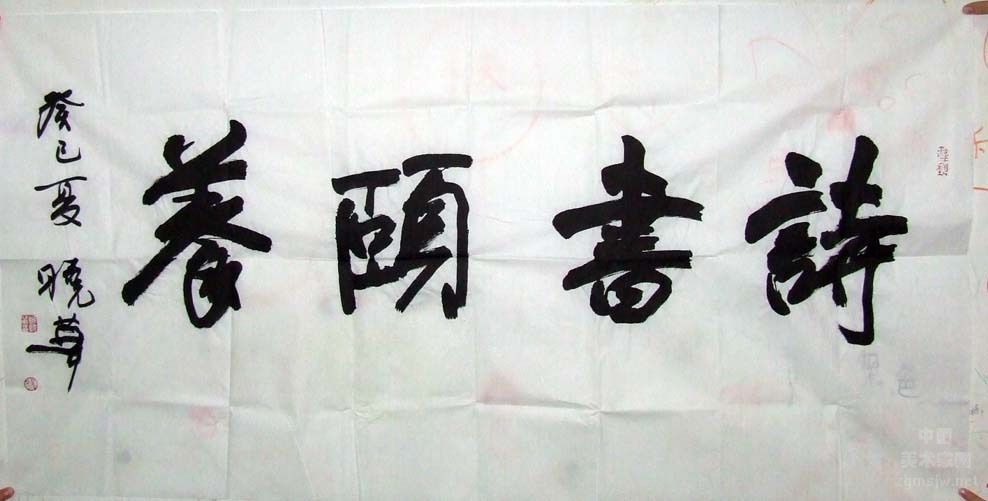 詩書頤養
癸巳夏
曉華
中国
美术家网
zgmsjw.net